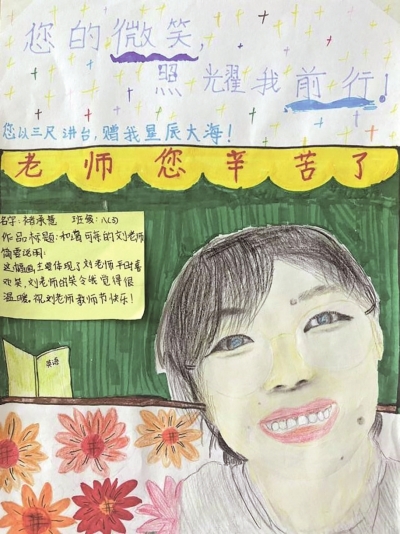 您的微笑,
照耀我前行!
您以三尺讲台,赠我星辰大海!
老师您辛苦了
名字:褚承慧 班级:八(3)
作品标题:和蔼可亲的刘老师
简要说明:
这幅画,主要体现了刘老师平时喜
欢笑,刘老师的笑令我觉得很
温暖。祝刘老师教师节快乐!
英语